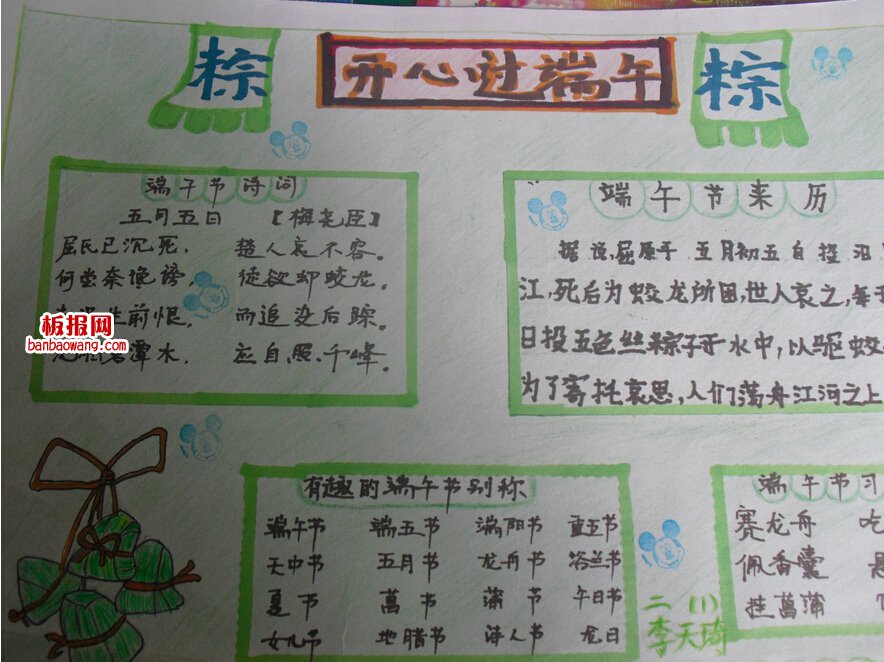 粽 开心过端午 粽
端午节诗词
五月五日 【梅尧臣】
屈氏已沉死， 楚人哀不容。
何尝奈谗谤， 徒欲却蛟龙。
前恨， 而追没后踪。
潭水， 应自照千峰。
板报网
banbaowang.com
端午节来历
据说，屈原于五月初五日投汨
江，死后为蛟龙所困，世人哀之，每于
日投五色丝粽子于水中，以驱蛟
为了寄托哀思，人们荡舟江河之上
有趣的端午节别称
端午节 端五节 端阳节 重五节
天中节 五月节 龙舟节 浴兰节
夏节 菖节 蒲节 午日节
女儿节 地腊节 诗人节 龙日
端午节习
赛龙舟 吃
佩香囊 悬
挂菖蒲
二（1）
李天琦